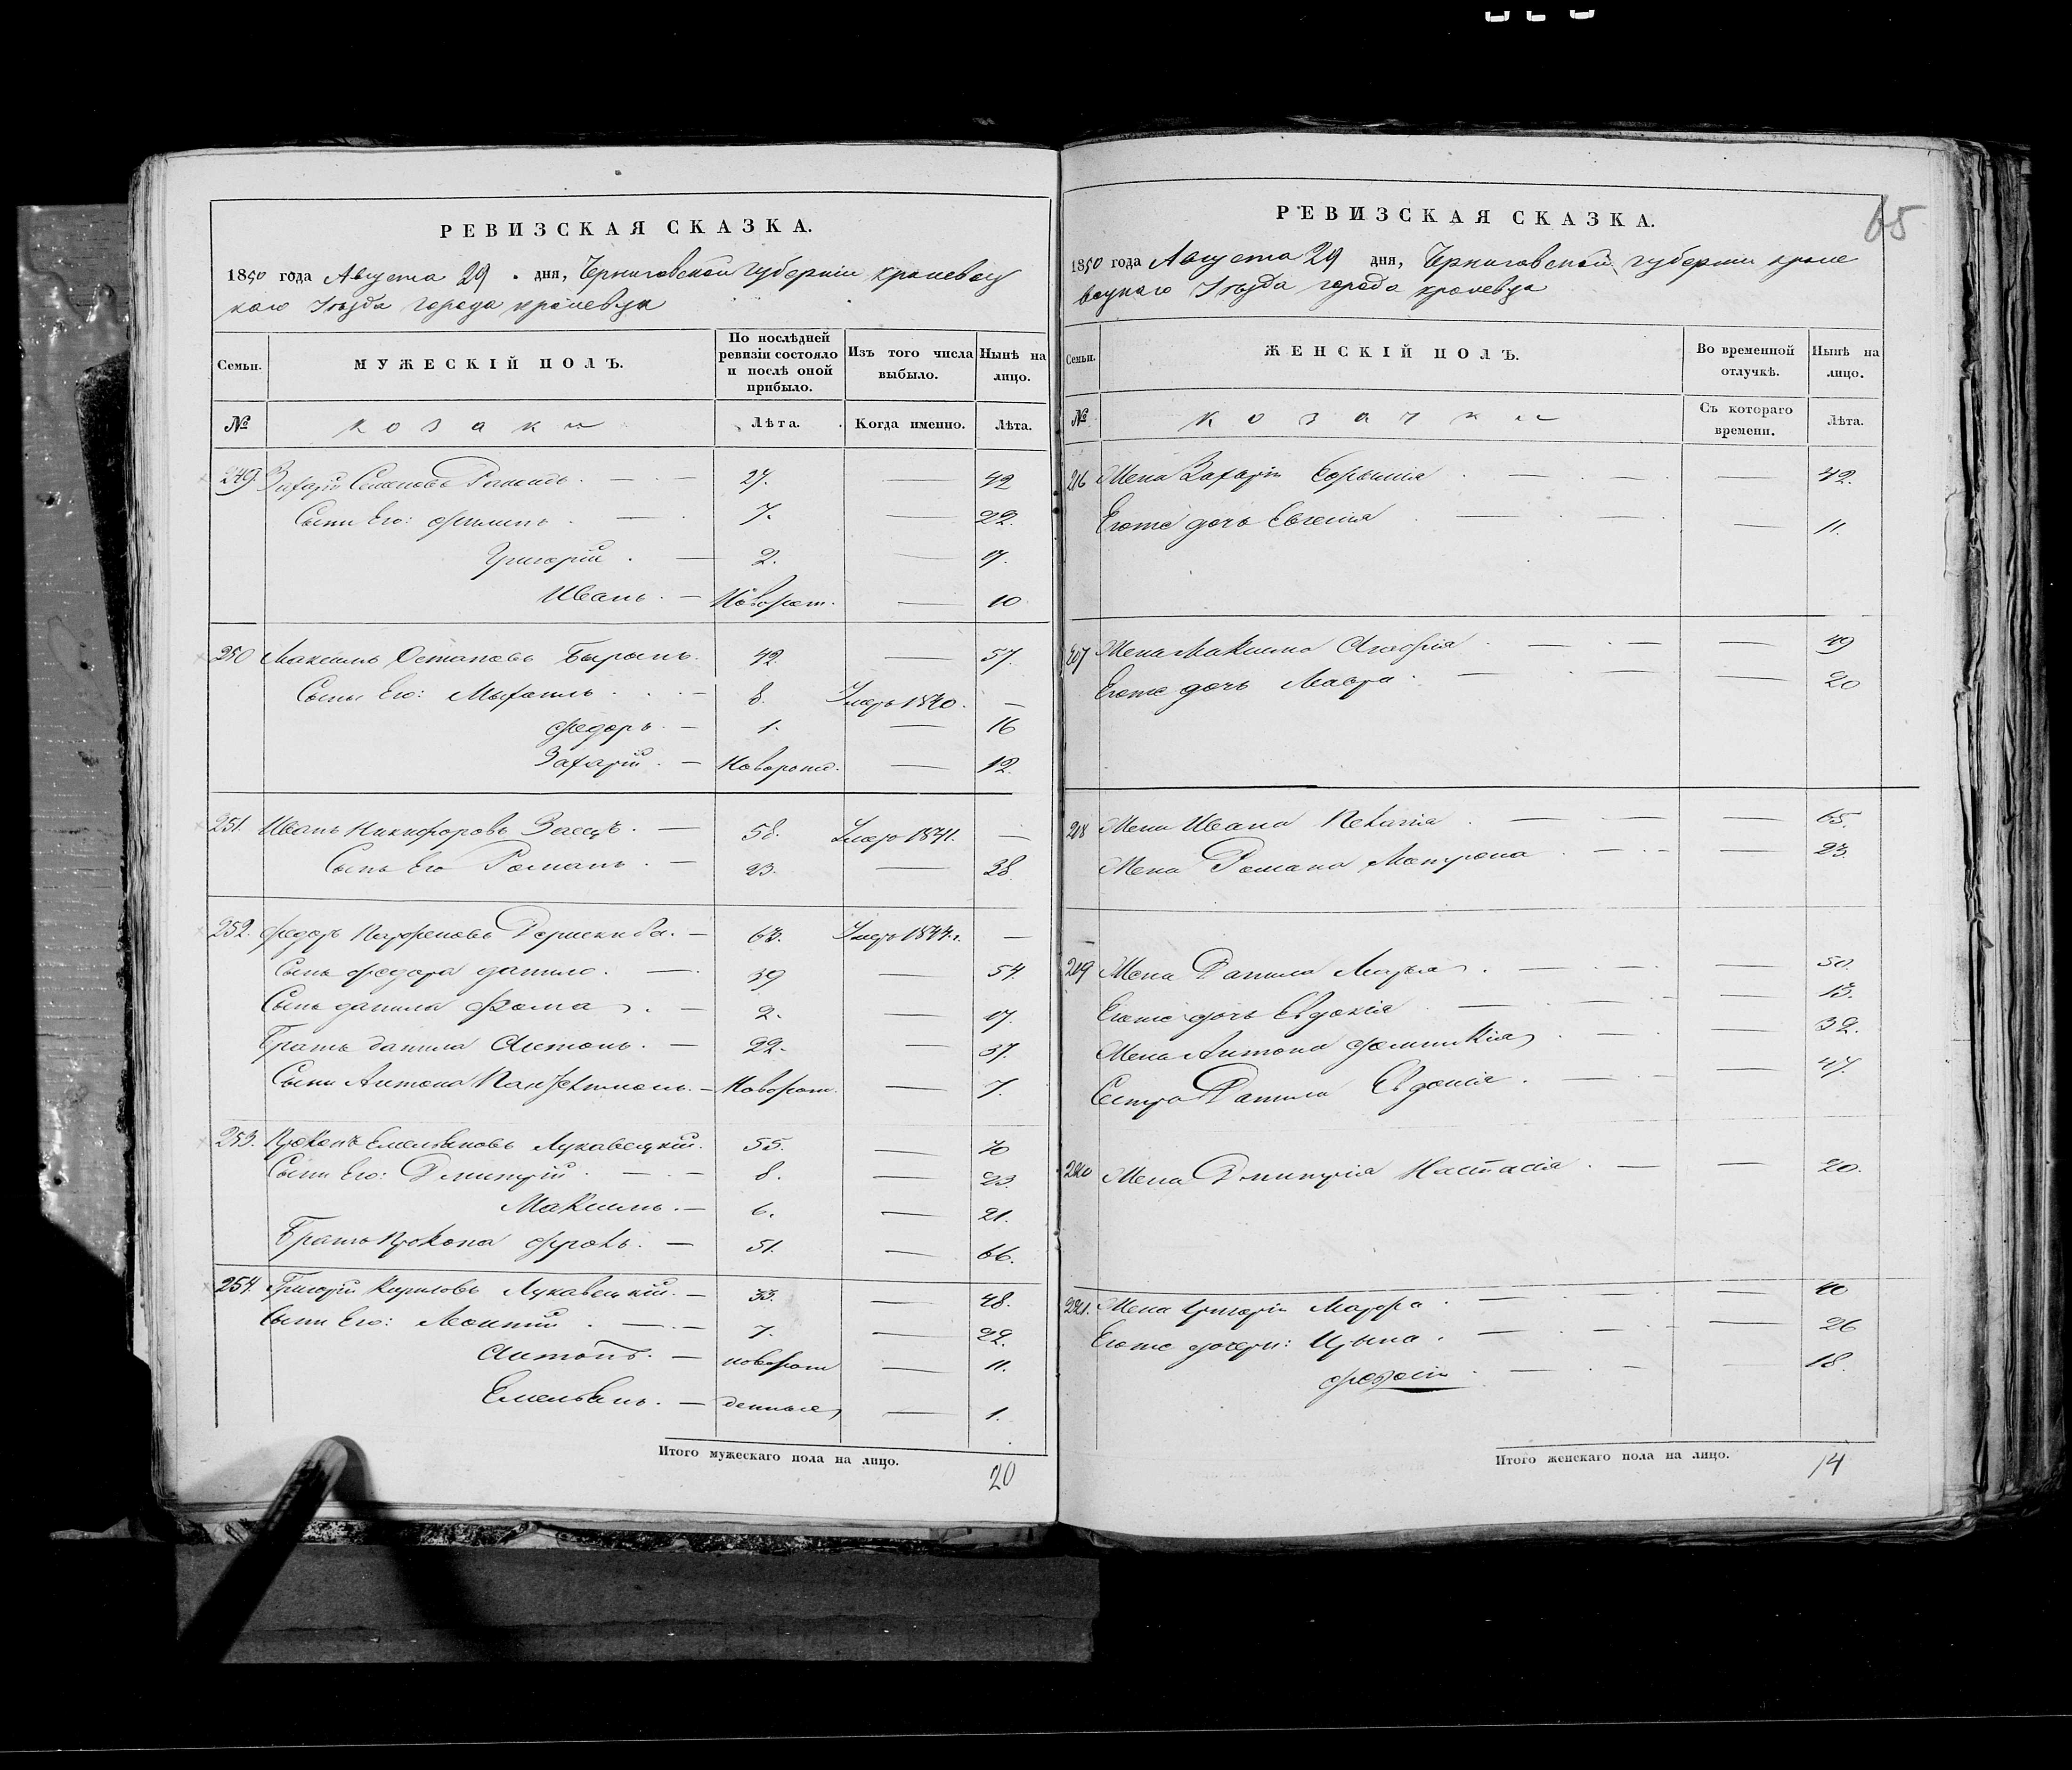 РЕВИЗСКАЯ СКАЗКА.
1850 года Августа 29 дня, Черниговской губернии кролевец
каго Уѣзда города кролевца
Семьи. МУЖЕСКІЙ ПОЛЪ. По послѣдней ревизіи состояло и послѣ оной прибыло. Изъ того числа выбыло. Нынѣ на лицо.
№ козаки Лѣта. Когда именно. Лѣта.
249. Захарій Семеновъ — 27. — 42
Сыны Его: Филипъ — 7. — 22.
Григорій — 2. — 17.
Иванъ — Новорож. — 10
250 Максимъ Остаповъ Бырынъ. 42. — 57.
Сыны Его: Мыхаилъ — 8. Умеръ 1840. —
Федоръ — 1. — 16
Захарій — Новорожд. — 12.
251. Иванъ Никифоровъ Заецъ — 58. Умеръ 1841. —
Сынъ Его Романъ — 23. — 38.
252. Федоръ Парфеновъ — Умеръ 1844 г. —
Сынъ Федора данило — 39 — 54.
Сынъ данила Фома — 2. — 17.
Братъ данила Антонъ — 22. — 37.
Сынъ Антона — Новорож. — 7.
253. Прокопъ Емельяновъ Лукавецкій. 55. — 70
Сыны Его: Дмитрій — 8. — 23.
Максимъ — 6. — 21.
Братъ Прокопа Фролъ — 51. — 66.
254. Григорій Кириловъ Лукавецкій — 33. — 48.
Сыны Его: Леонтій — 7. — 22.
Антонъ — новорож — 11.
Емельянъ — денные — 1.
Итого мужескаго пола на лицо. 20
65
РЕВИЗСКАЯ СКАЗКА.
1850 года Августа 29 дня, Черниговской губернии кроле
вецкаго Уѣзда города кролевца
Семьи. ЖЕНСКІЙ ПОЛЪ. Во временной отлучкѣ. Нынѣ на лицо.
№ козачки Съ котораго времени. Лѣта.
216 Жена Захарія — — 42.
Егоже дочь Евгенія — — 11.
217 Жена Максима — — 49
Егоже дочь Мавра — — 20
218 Жена Ивана Пелагія — — 65.
Жена Романа Матрона — — 23.
219 Жена Данила Марья — — 50.
Егоже дочь Евдокія — — 13.
Жена Антона — — 32.
Сестра Данила Евдокія — — 47.
220 Жена Дмитрія Настасія — — 20.
221. Жена Григорія Марфа — — 40
Егоже дочери: Ирына — — 26
— — 18.
Итого женскаго пола на лицо. 14